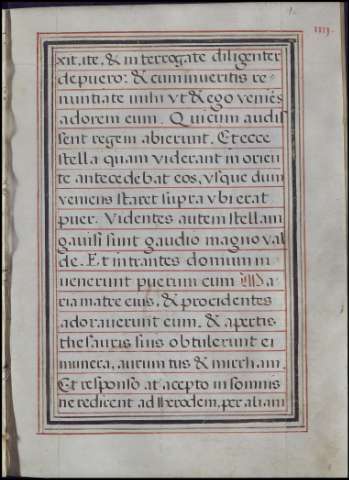 IIII.
xit, ite, & interrogate diligenter
de puero: & cum inveritis re-
nuntiate mihi vt & ego veniēs
adorem eum. Qui cum audis
sent regem abierunt. Et ecce
stella quam viderant in orien
te antecedebat eos, vsque dum
veniens staret supra vbi erat
puer. Videntes autem stellam
gavisi sunt gaudio magno val
de. Et intrantes domum in
uenerunt puerum cum Ma
ria matre eius, & procidentes
adorauerunt eum, & apertis
thesauris suis obtulerunt ei
munera, aurum tus & mirrham.
Et responso at acepto in somnis
ne redirent ad Herodem, per aliam